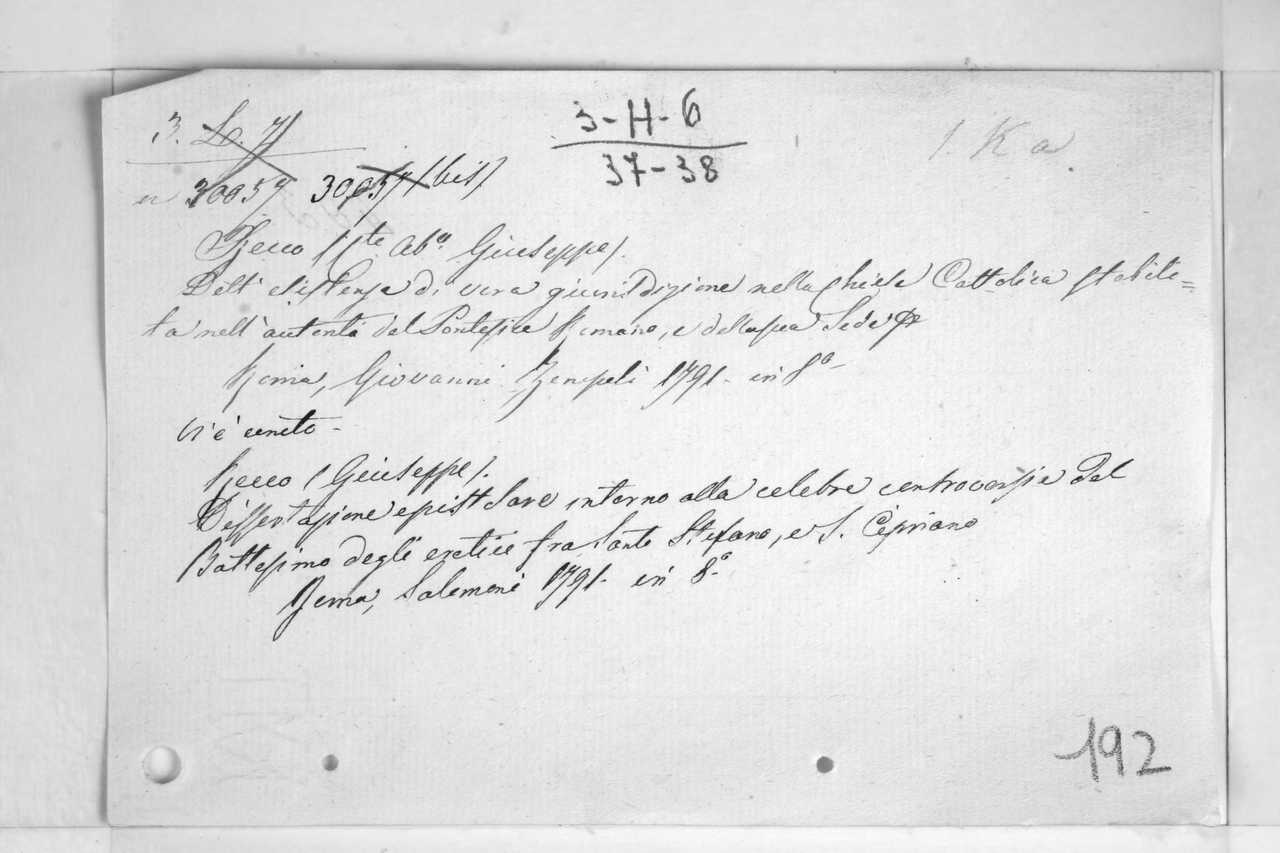 3. L. 7/
3-H-6
37-38
1. K a
n 30057 30057 (bis)
Recco (Cte Abe Giuseppe).
Dell' esistenza di vera giurisdizione nella Chiesa Cattolica stabili=
ta nell' autorità del Pontefice Romano, e della sua Sede
Roma, Giovanni Zempeli 1791. in 8o
Vi è unito -
Recco (Giuseppe).
Dissertazione epistolare intorno alla celebre controversia del
Battesimo degli eretici fra Santo Stefano, e S. Cipriano
Roma, Salomoni 1791. in 8o
192